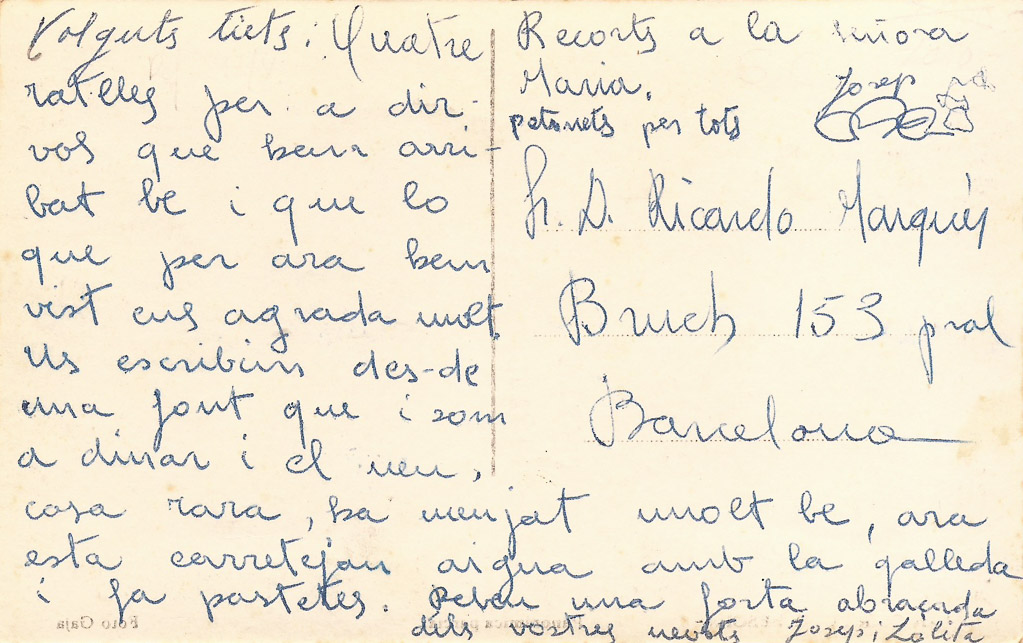 Volguts tiets: Quatre
ratlles per a dir-
vos que hem arri-
bat be i que lo
que per ara hem
vist ens agrada molt.
Us escribim des-de
una font que i som
a dinar i el nen,
cosa rara, ha menjat molt be, ara
esta carretejan aigua amb la galleda
i fa pastetes. Rebeu una forta abraçada
dels vostres nevots Josep i Lolita
Recorts a la señora
Maria.
petonets per tots
Josep
Sr. D. Ricardo Marqués
Bruch 153 pral
Barcelona
Foto Gaja